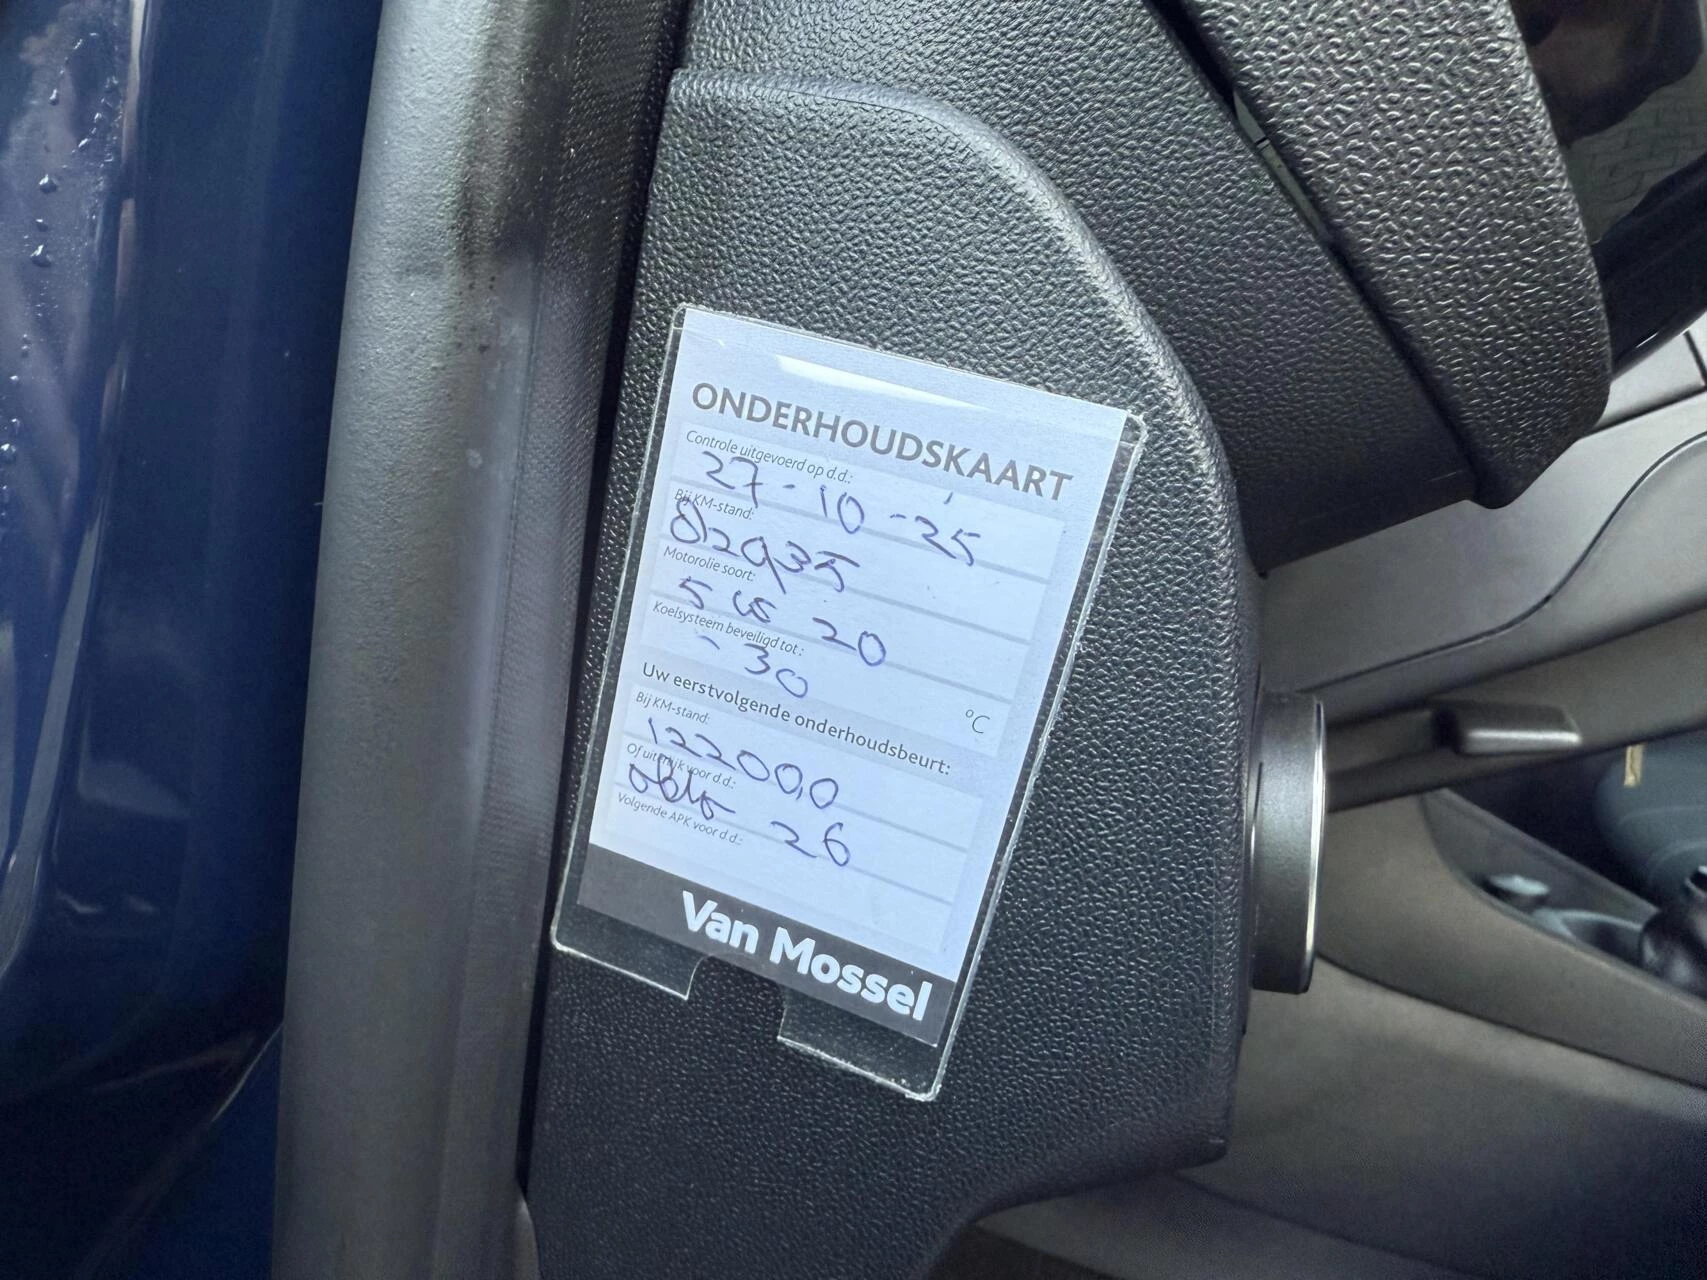 ONDERHOUDSKAART
Controle uitgevoerd op d.d.:
27-10-25
Bij KM-stand:
Motorolie soort:
5w 20
Koelsysteem beveiligd tot:
-30
°C
Uw eerstvolgende onderhoudsbeurt:
Bij KM-stand:
122000
Of uiterlijk voor d.d.:
okto 26
Volgende APK voor d.d.:
Van Mossel